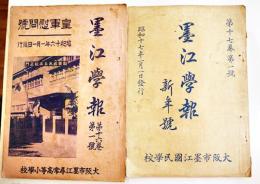 皇軍慰問號
昭和十六年一月一日發行
墨江學報
第十六卷
第一號
大阪市墨江尋常高等小學校
第十七卷第一號
墨江學報
新年號
昭和十七年一月一日發行
大阪市墨江國民學校